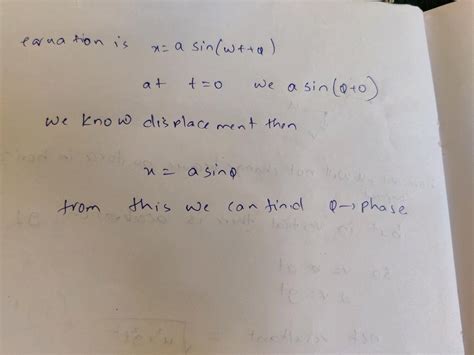 earuation is x = a sin(wt+φ)
at t=0 we a sin(φ+0)
we know displacement then
x = a sinφ
from this we can find φ→phase